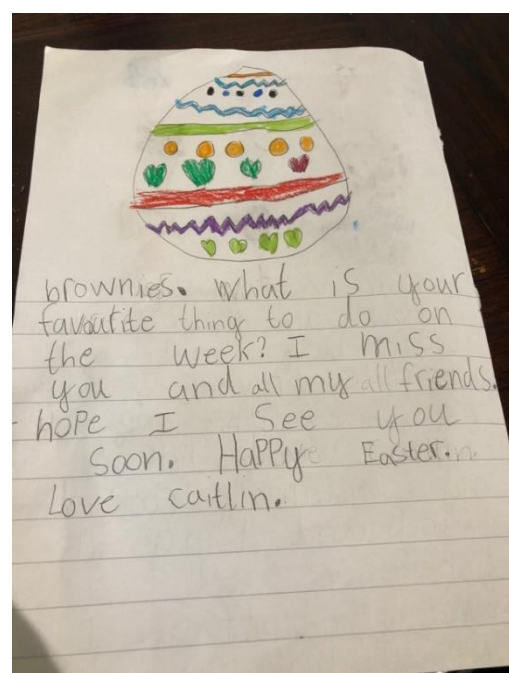 brownies. What is your
favoutite thing to do on
the week? I miss
you and all my all friends.
hope I see you
soon. Happy Easter.
Love caitlin.